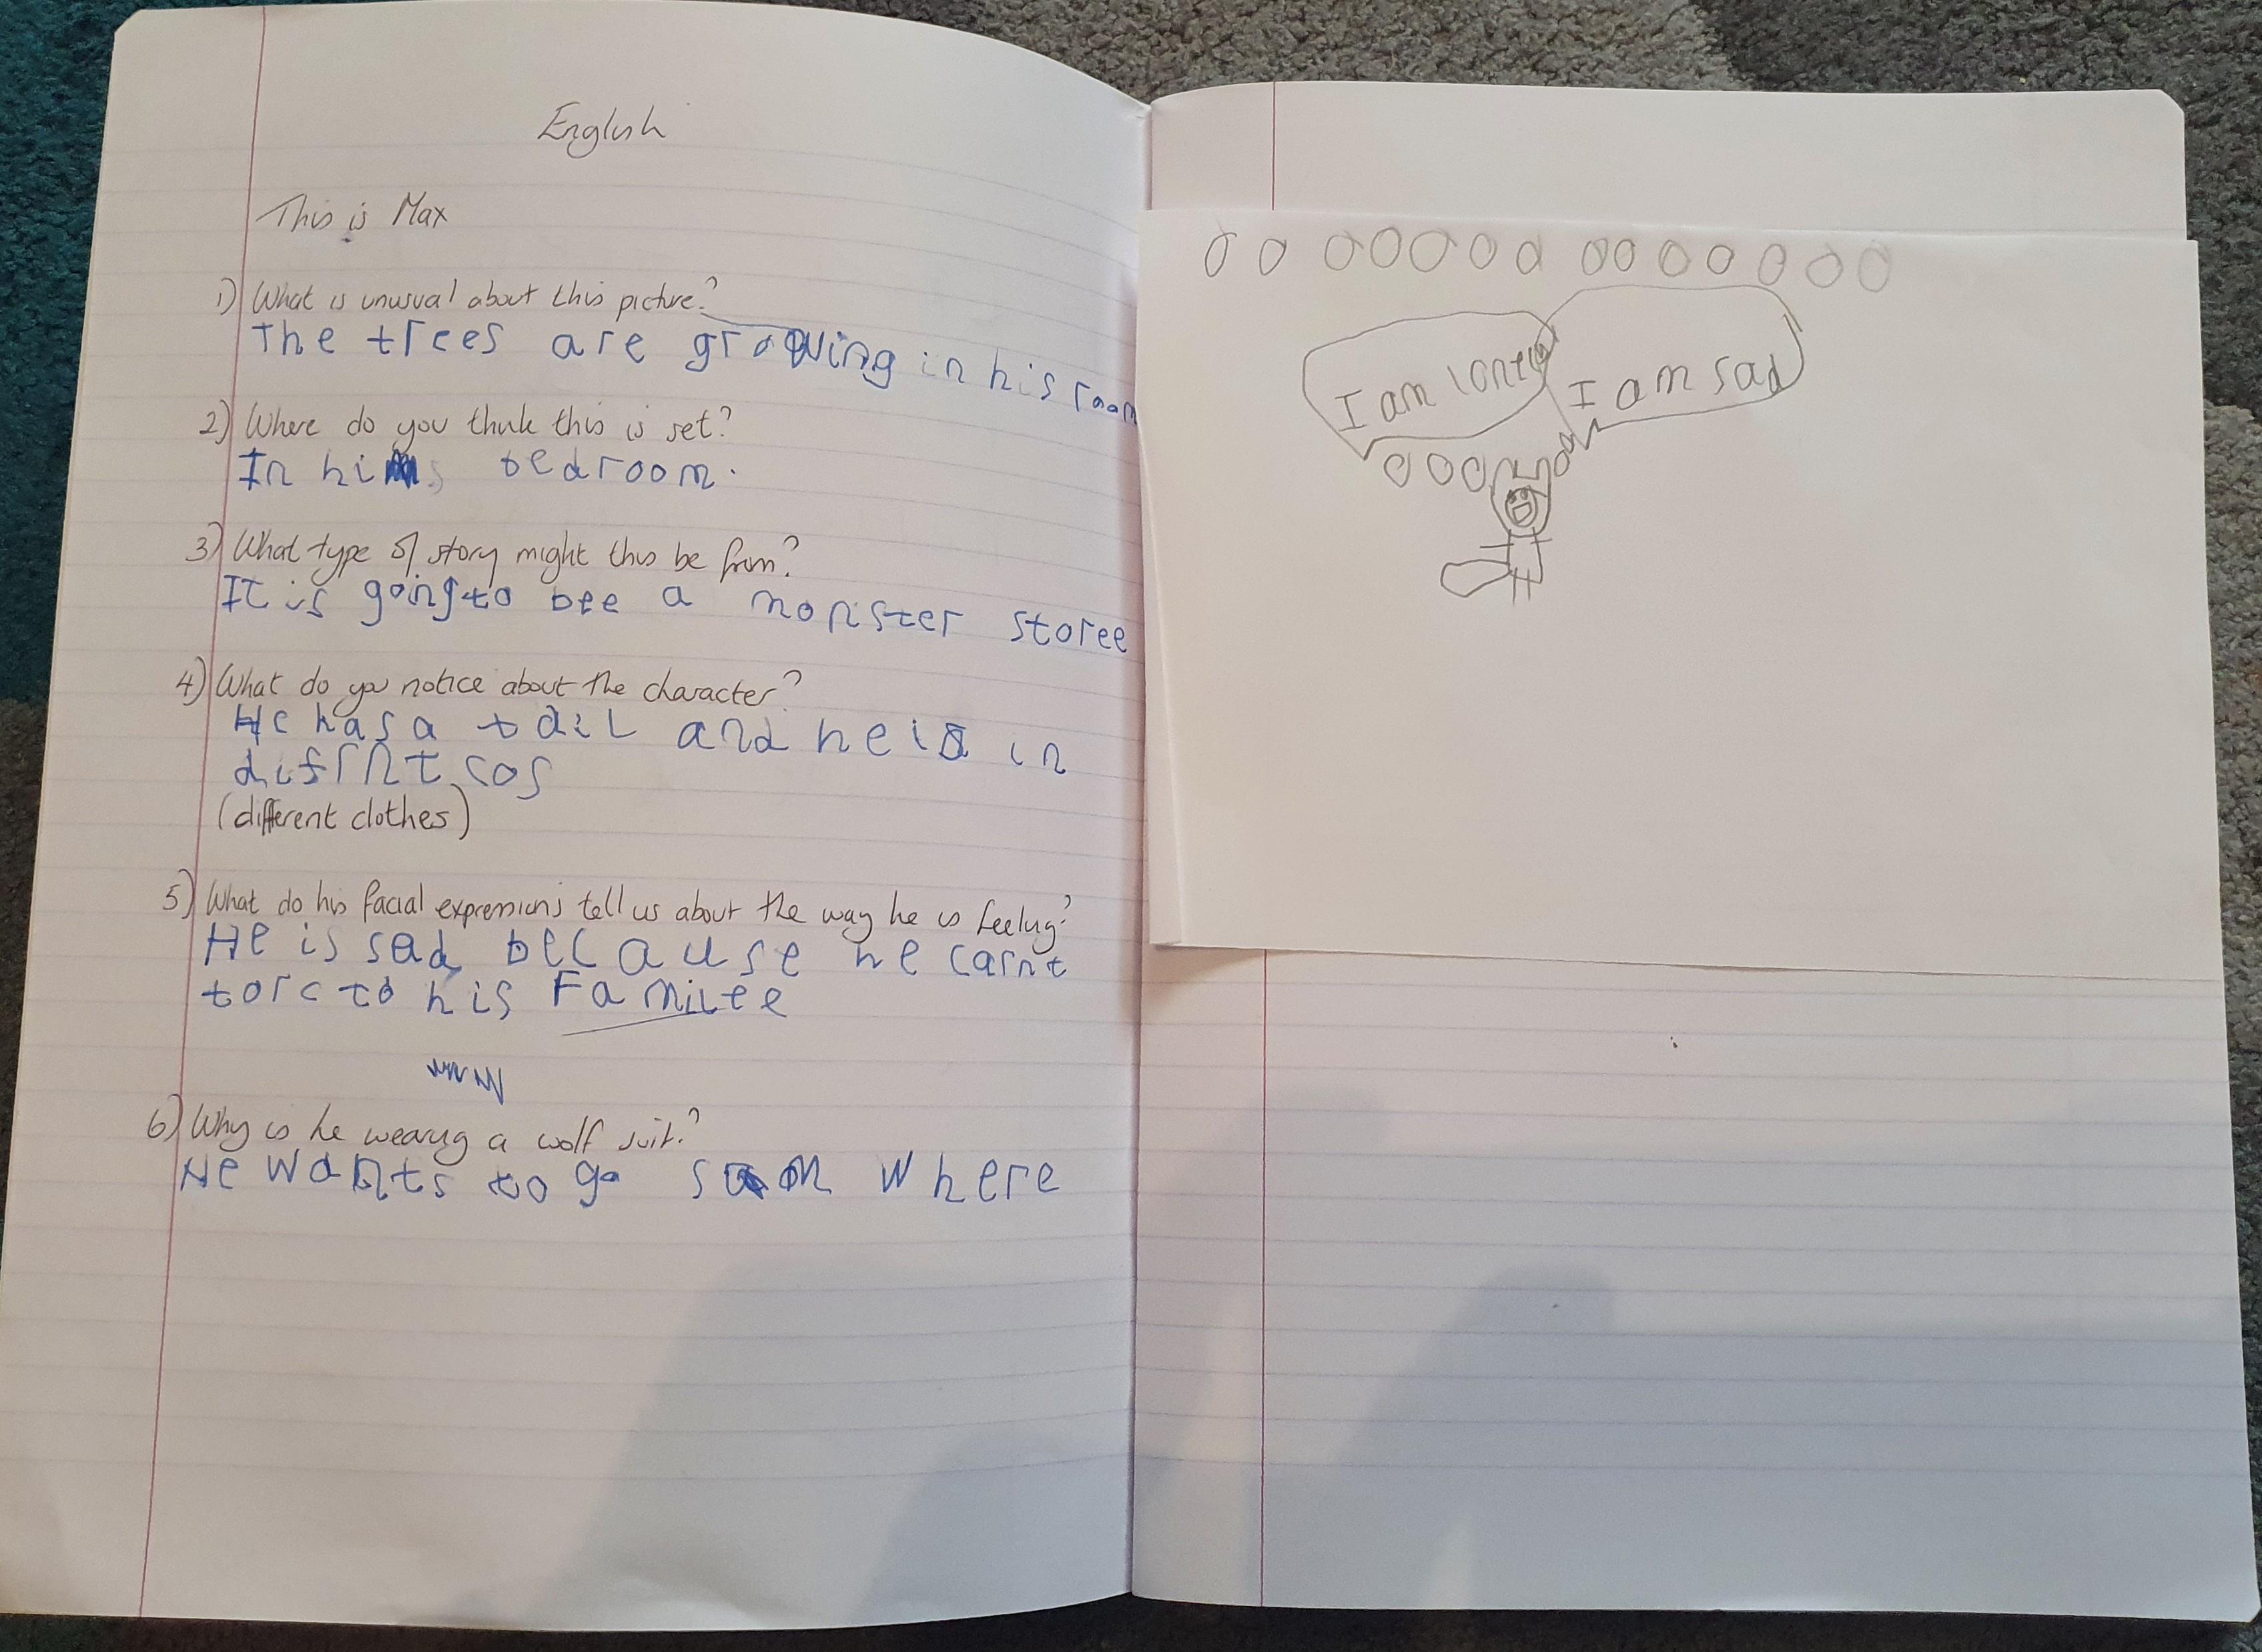 English
This is Max
1) What is unusual about this picture?
The trees are growing in his room
2) Where do you think this is set?
In his bedroom.
3) What type of story might this be from?
It is going to bee a monster storee
4) What do you notice about the character?
He has a tail and he is in
difrnt cos
(different clothes)
5) What do his facial expressions tell us about the way he is feeling?
He is sad because he carnt
torc to his Familee
6) Why is he wearing a wolf suit?
He wants to go som where
I am
I am sad